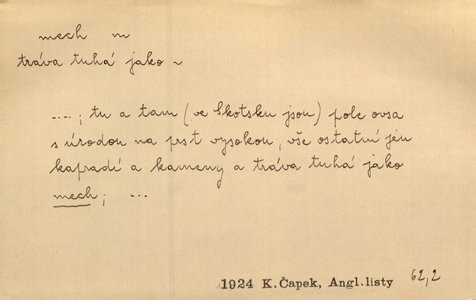 mech m
tráva tuhá jako ~
...; tu a tam (ve Skotsku jsou) pole ovsa
s úrodou na prst vysokou, vše ostatní jen
kapradí a kameny a tráva tuhá jako
mech; ...
1924 K. Čapek, Angl. listy 62,2